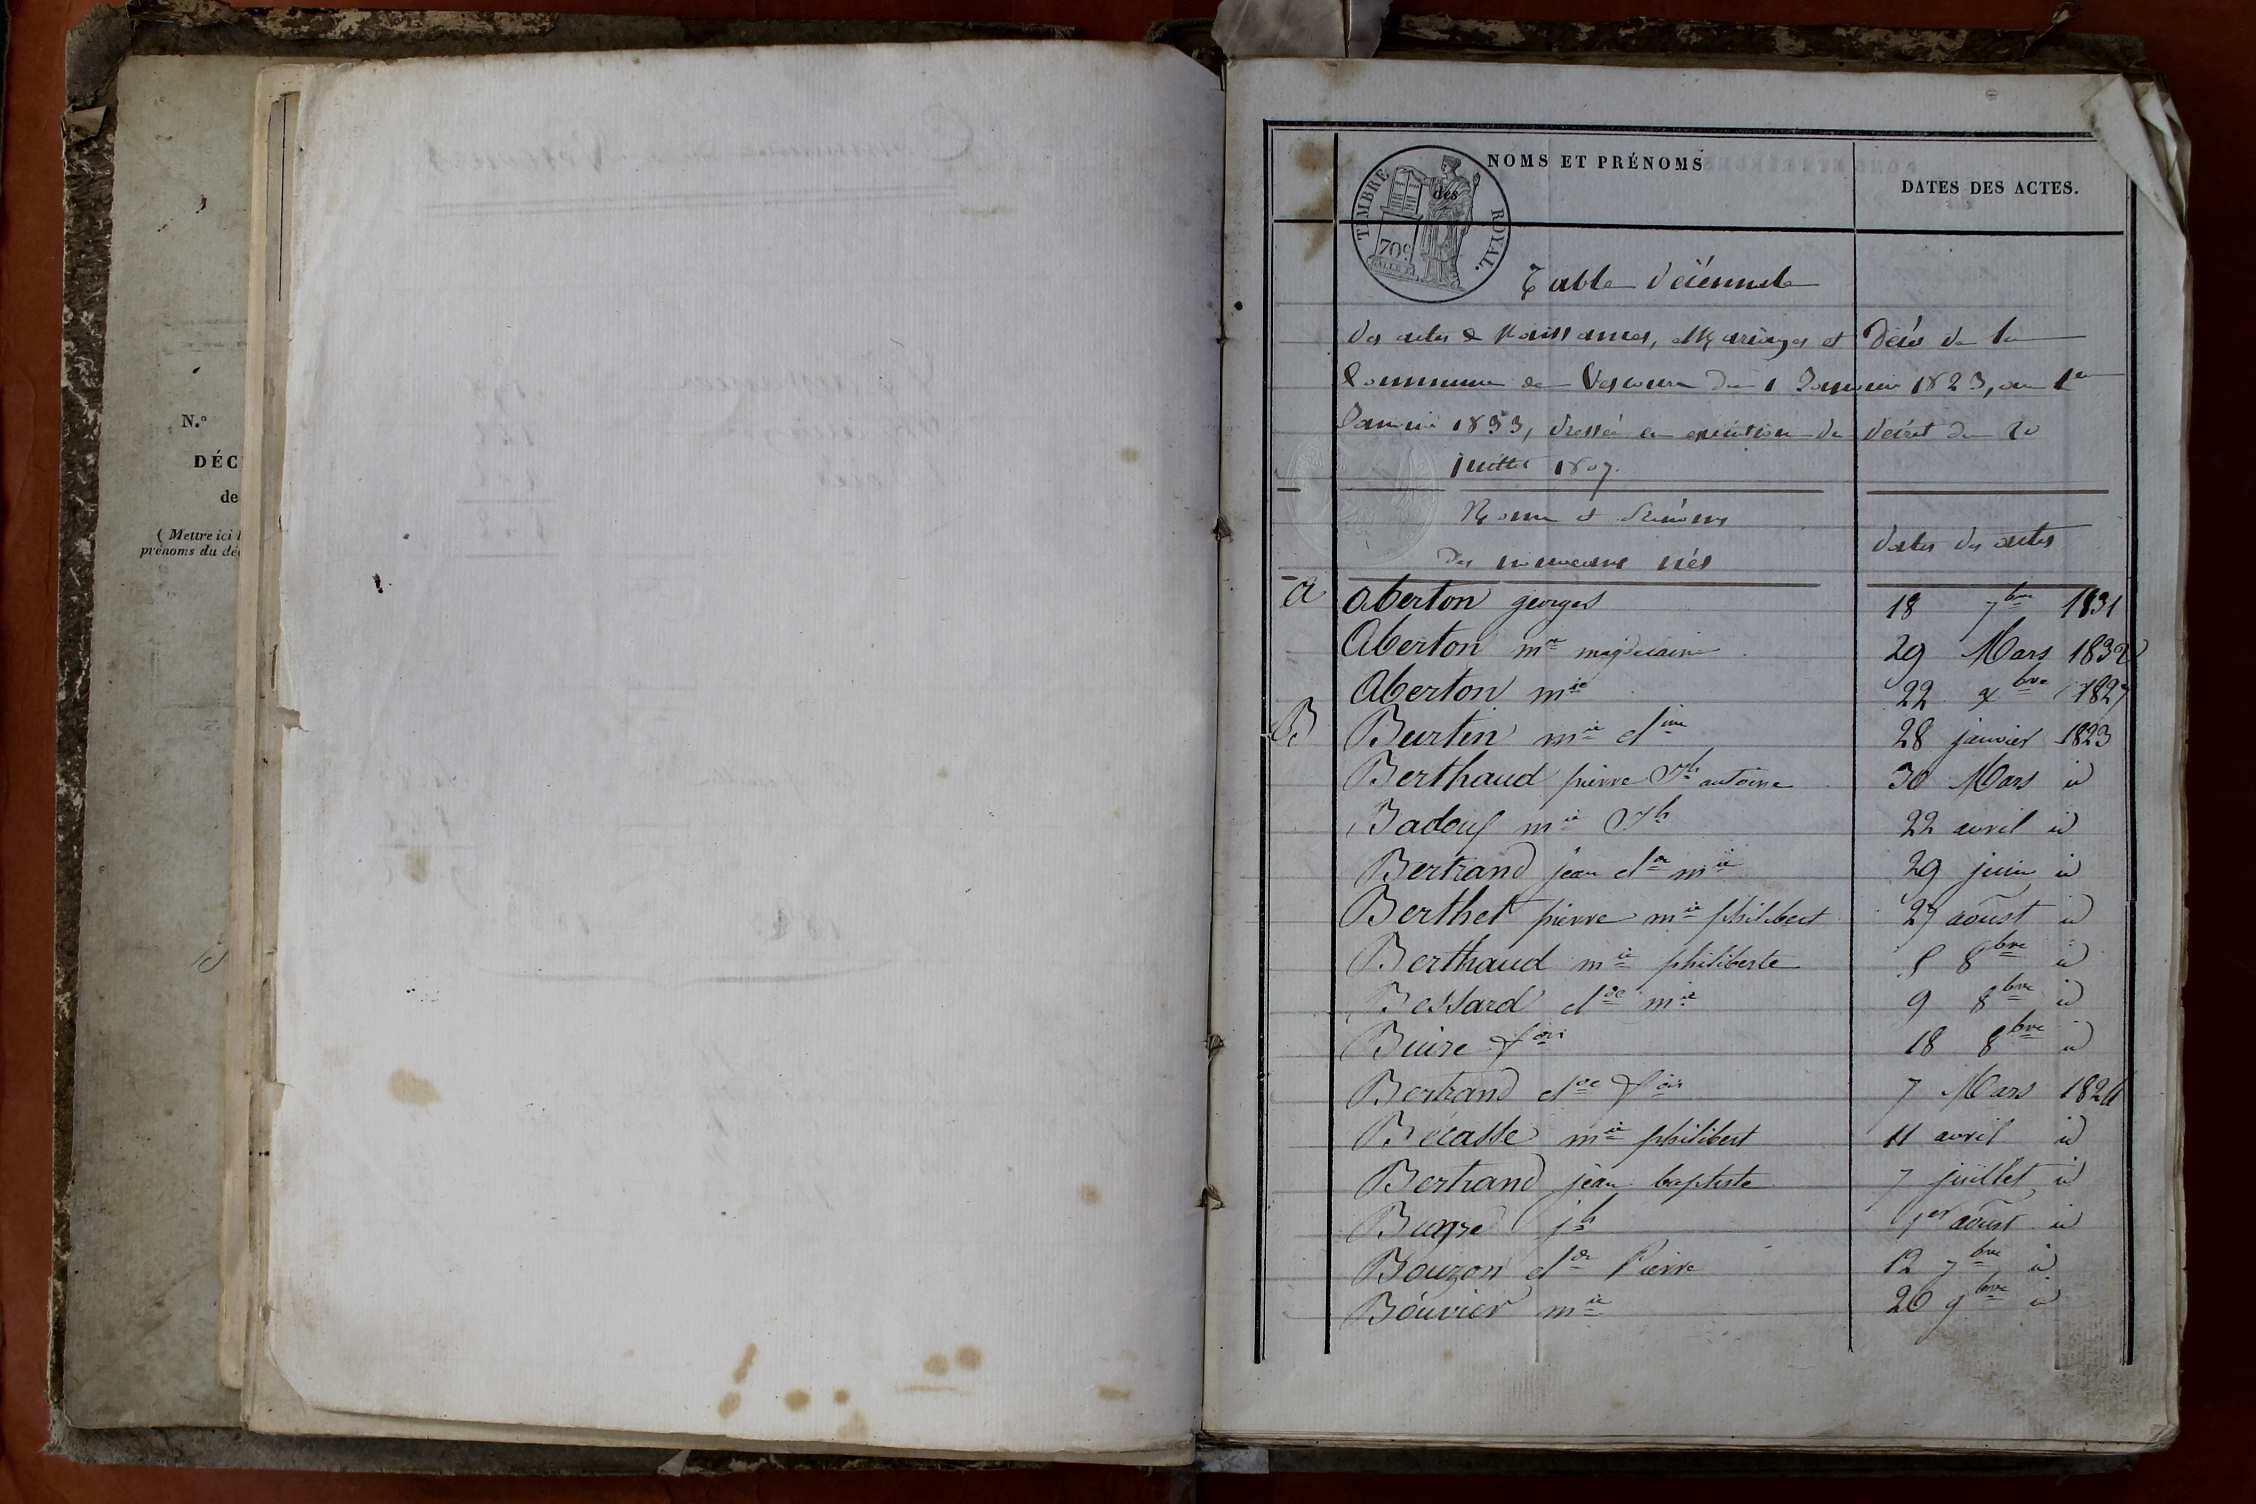 N.º
DÉC
de
( Mettre ici l
prénoms du déc
NOMS ET PRÉNOMS
des
DATES DES ACTES.
TIMBRE ROYAL.
70 c.
Table décennale
des actes de Naissances, Mariages et Décès de la
Commune de Vescours du 1 Janvier 1823, au 1er
Janvier 1833, dressée en exécution du décret du 20
juillet 1807.
Noms et Prénoms
des nouveaux nés
dates des actes
A Aberton georges 18 7bre 1831
Aberton mie magdelaine 29 Mars 1832
Aberton mie 22 9bre 1827
B Burtin mie 28 janvier 1823
Berthaud pierre Jh antoine 30 Mars id
Badouf mie Jh 22 avril id
Bertrand jean clde mie 29 juin id
Berthet pierre mie philibert 27 aoust id
Berthaud mie philiberte 8bre id
Bessard clde mie 9 8bre id
Buire fois 18 8bre id
Bertrand clde fois 7 Mars 1824
Bécasse mie philibert 11 avril id
Bertrand jean baptiste 7 juillet id
jh 1er aoust id
Bouzon clde Pierre 12 7bre id
Bouvier mie 20 9bre id